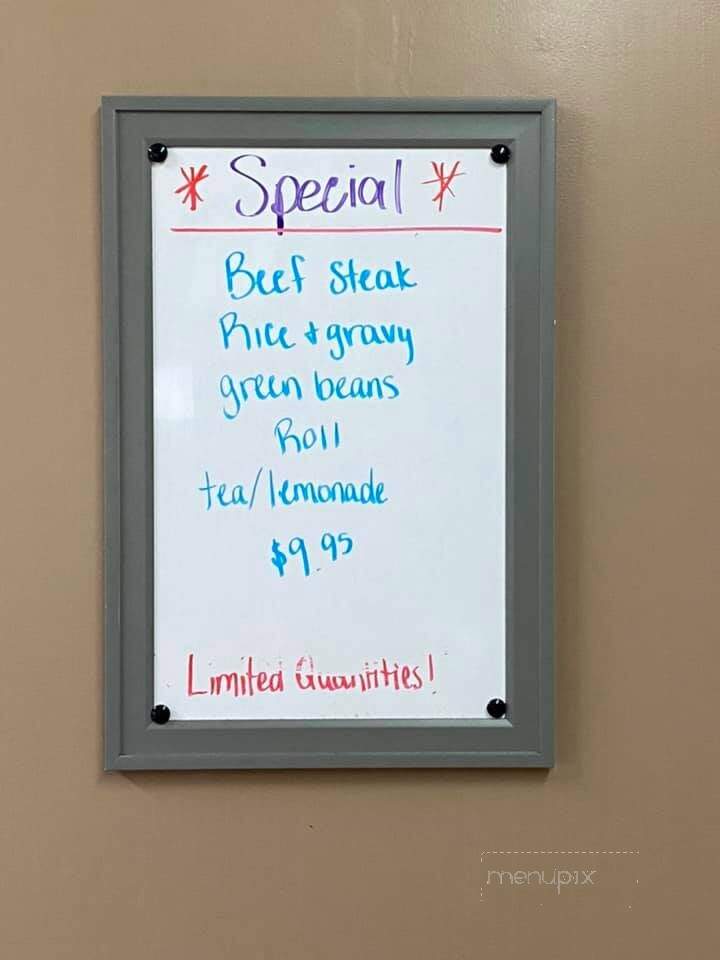 * Special *
Beef Steak
Rice + gravy
green beans
Roll
tea/lemonade
$9.95
Limited Quantities!
menupix